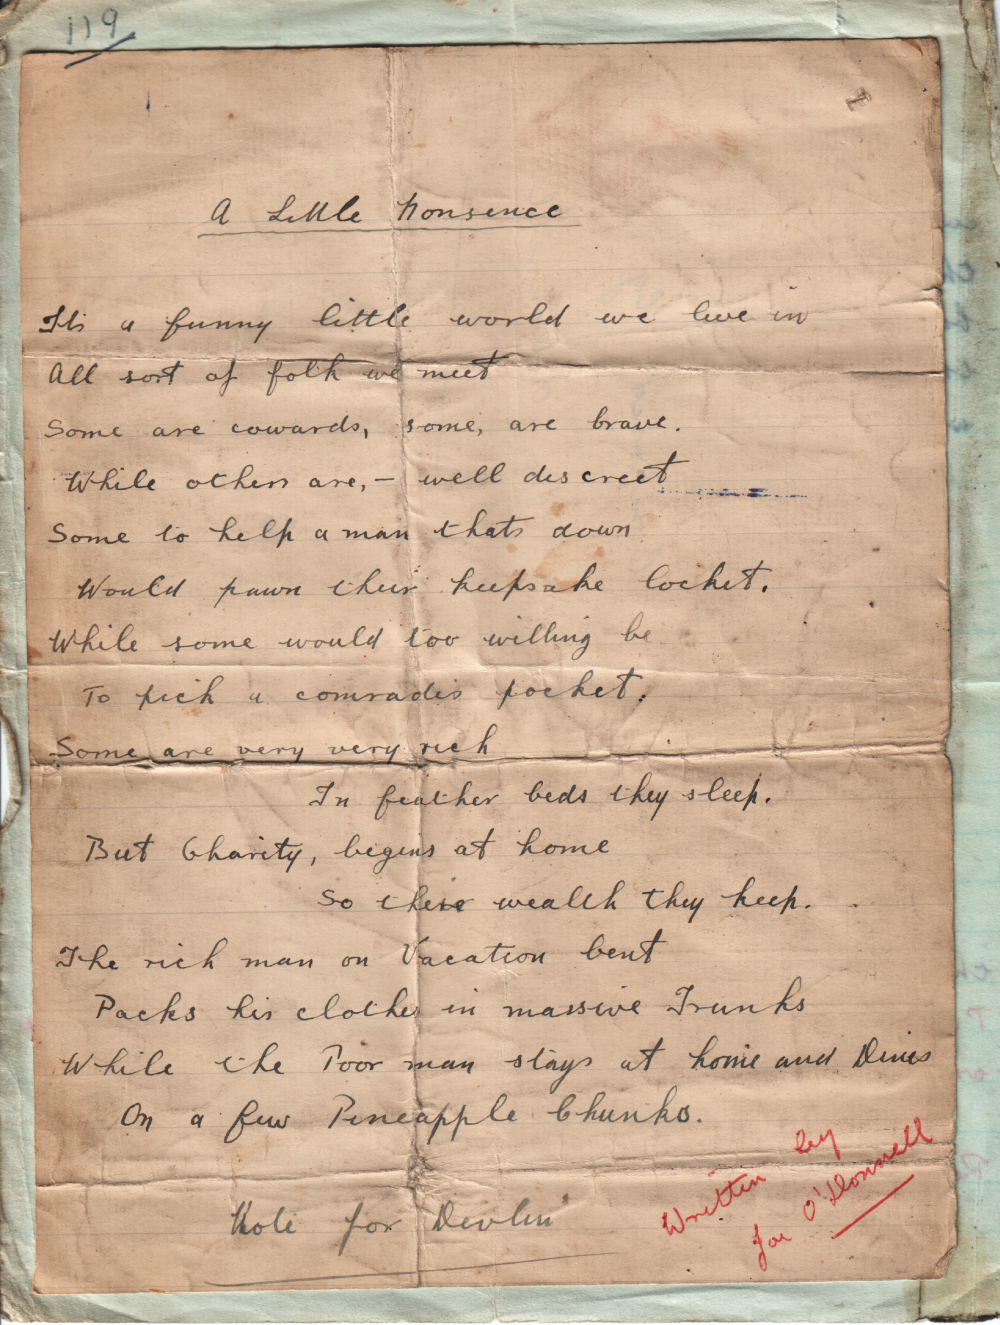 119
A Little Nonsence
Its a funny little world we live in
All sort of folk we meet
Some are cowards, some, are brave.
While others are, - well discreet
Some to help a man thats down
Would pawn their keepsake locket.
While some would too willing be
To pick a comrades pocket.
Some are very very rich
In feather beds they sleep.
But Charity, begins at home
So there wealth they keep.
The rich man on Vacation bent
Packs his clothes in massive Trunks
While the Poor man stays at home and Dines
On a few Pineapple Chunks.
Vote for Devlin
Written by
Joe O'Donnell